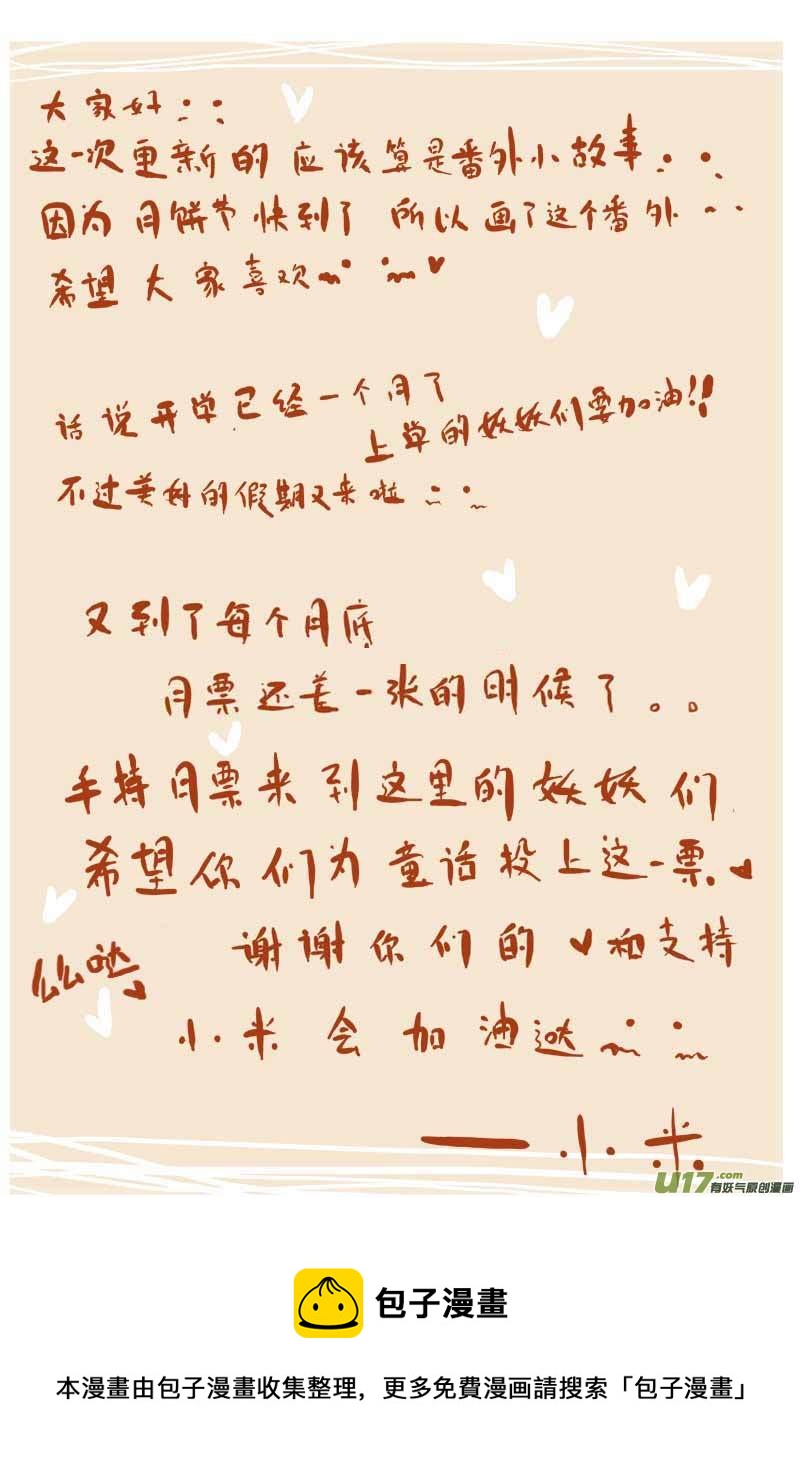 大家好：：
这一次更新的应该算是番外小故事．．
因为月饼节快到了 所以画了这个番外~~
希望大家喜欢~~♥
话说开学已经一个月了
上学的妖妖们要加油!!
不过美好的假期又来啦
又到了每个月底
月票还差一张的时候了。。
手持月票来到这里的妖妖们
希望你们为童话投上这一票♥
谢谢你们的♥和支持
么么哒♥
小米会加油哒
——小米
U17.com
有妖气原创漫画
包子漫畫
本漫畫由包子漫畫收集整理，更多免費漫画請搜索「包子漫畫」